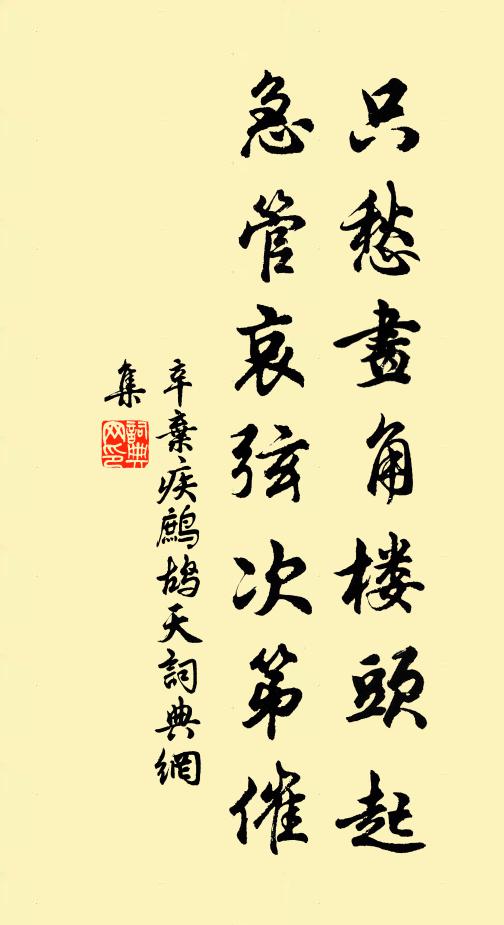 只愁畫角楼頭起
急管哀弦次第催
辛棄疾鷓鴣天詞典網
集
詞典
网印